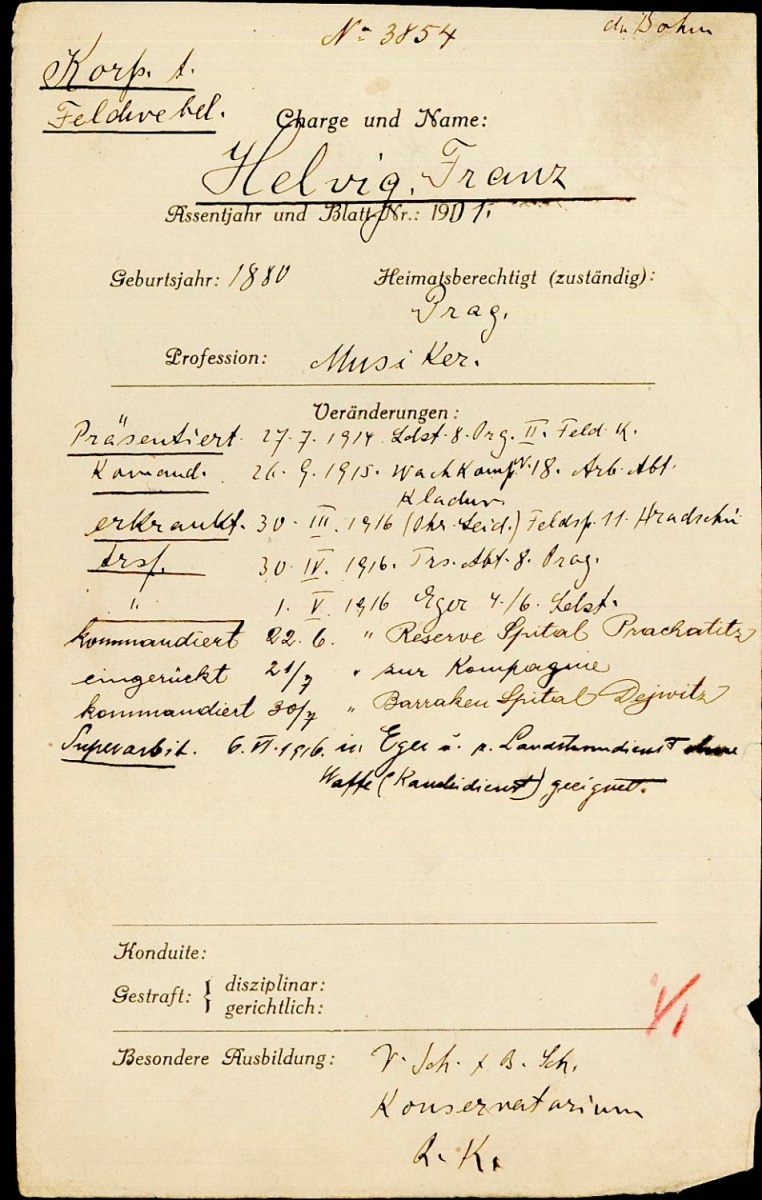 No 3854
Korp. t.
Feldwebel.
Charge und Name:
Helvig, Franz
Assentjahr und Blatt-Nr.: 1901.
Geburtsjahr: 1880
Heimatsberechtigt (zuständig):
Prag.
Profession: Musiker.
Veränderungen:
Präsentiert. 27. 7. 1914 Ldst. 8. Prg. II. Feld K.
Komand. 26. 9. 1915. Wachkomp. 18. Arb. Abt.
erkrankt. 30. III. 1916 (Ohr. Leid.) Feldsp. 11. Hradschin
trsf. 30. IV. 1916. Trs. Abt. 8. Prag.
" 1. V. 1916 Eger 4./6. Ldst.
kommandiert 22. 6. " Reserve Spital Prachatitz
eingerückt 21/7 " zur Kompagnie
kommandiert 30/7 " Barraken Spital Dejwitz
Superarbit. 6. VI. 1916. in Eger z. Landsturmdienst ohne
Waffe (Kanzleidienst) geeignet.
Konduite:
Gestraft: { disziplinar:
gerichtlich:
Besondere Ausbildung: V. Sch. + B. Sch.
Konservatorium
R. K.